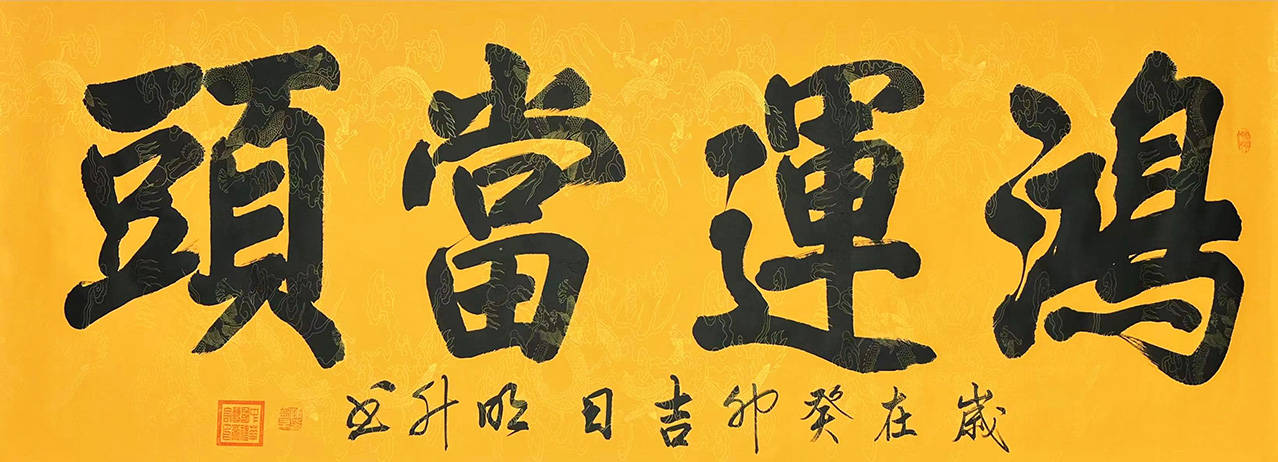 鴻運當頭
歲在癸卯吉日明升书